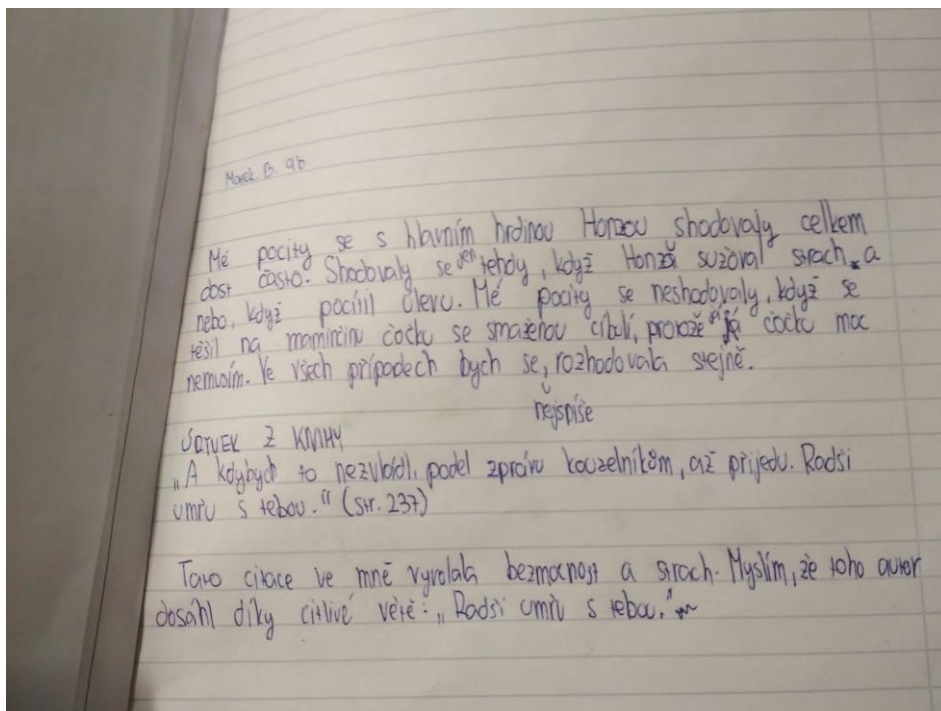 Marek B. 9b
Mé pocity se s hlavním hrdinou Honzou shodovaly celkem
dost často. Shodovaly se jen tehdy, když Honzu sužoval strach a
nebo, když pocítil úlevu. Mé pocity se neshodovaly, když se
těšil na maminčinu čočku se smaženou cibulí, protože já čočku moc
nemusím. Ve všech případech bych se, rozhodovala stejně.
nejspíše
ÚRYVEK Z KNIHY
„A kdybych to nezvládl, podej zprávu kouzelníkům, až přijedu. Radši
umřu s tebou." (str. 237)
Tato citace ve mně vyvolala bezmocnost a strach. Myslím, že toho autor
dosáhl díky citlivé větě: „Radši umřu s tebou."